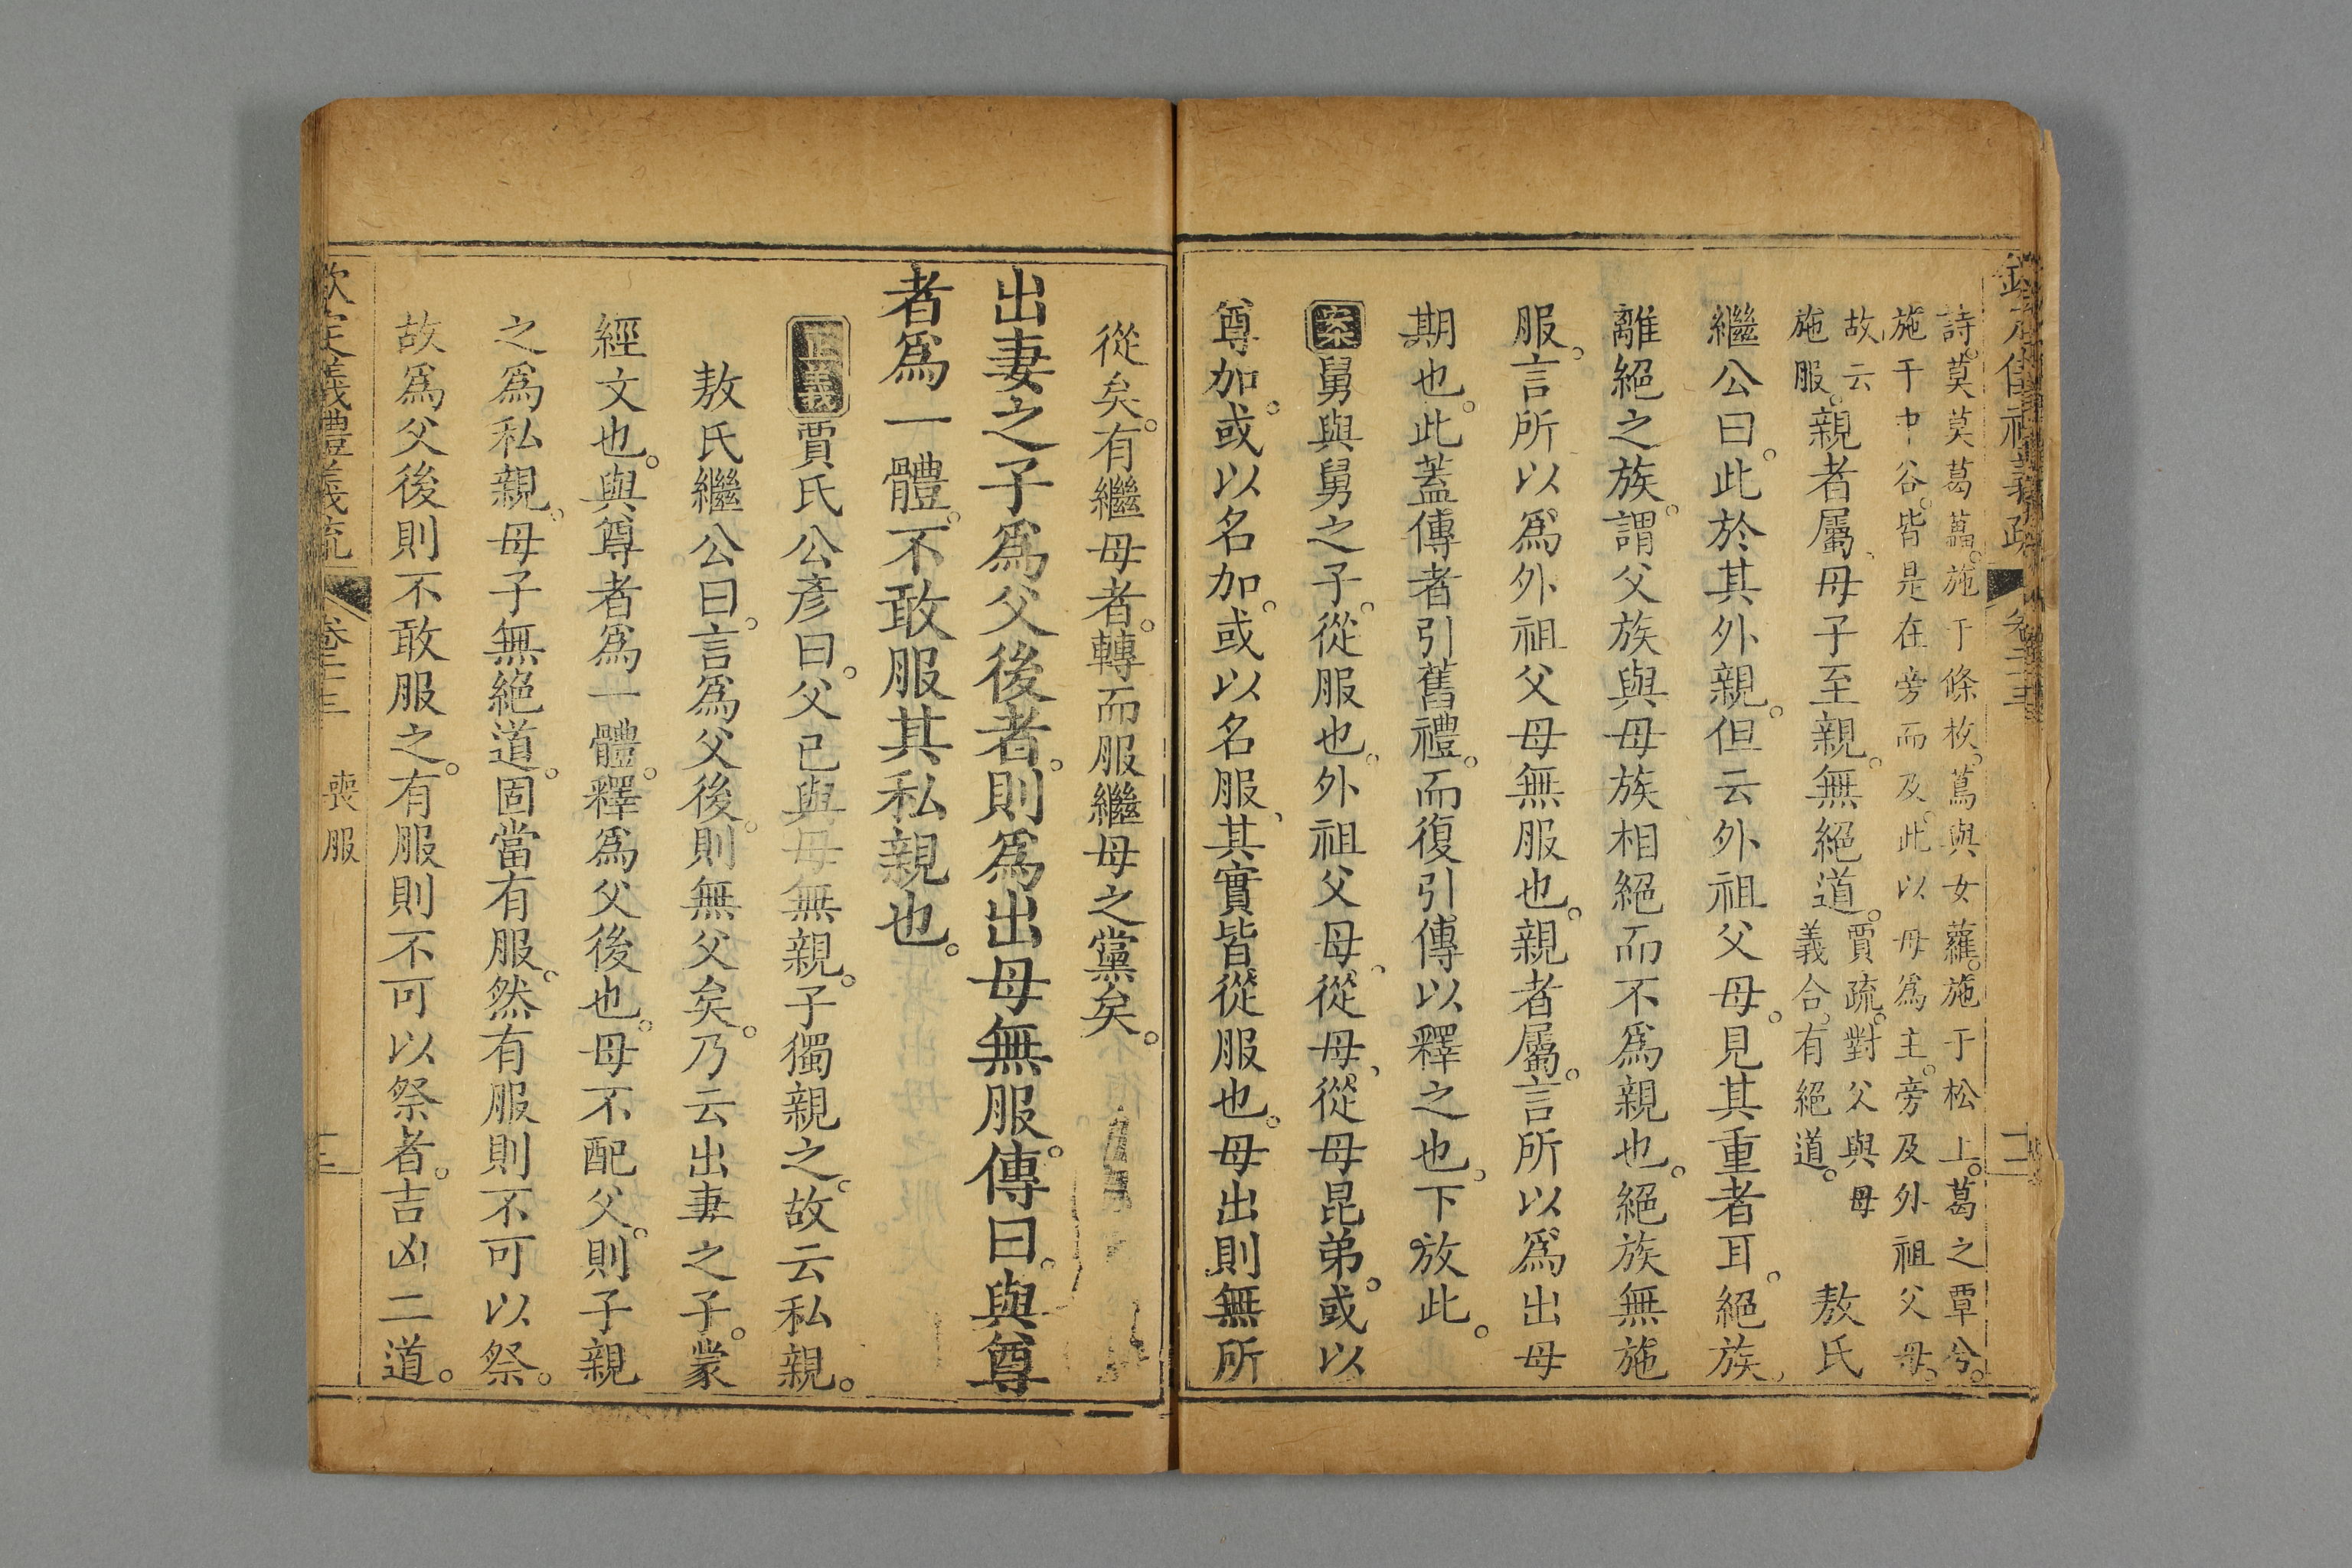 詩。莫莫葛藟。施于條枚。蔦與女蘿。施于松上。葛之覃兮。
施于中谷。皆是在旁而及。此以母爲主。旁及外祖父母。
故云
施服。親者屬、母子至親。無絕道。賈疏。對父與母
義合。有絕道。敖氏
繼公曰。此於其外親。但云外祖父母。見其重者耳。絕族、
離絕之族。謂父族與母族相絕而不爲親也。絕族無施
服。言所以爲外祖父母無服也。親者屬。言所以爲出母
期也。此蓋傳者引舊禮。而復引傳以釋之也、下放此。
案舅與舅之子。從服也。外祖父母、從母、從母昆弟。或以
尊加。或以名加。或以名服、其實皆從服也。母出則無所
從矣。有繼母者。轉而服繼母之黨矣。
出妻之子爲父後者。則爲出母無服。傳曰。與尊
者爲一體。不敢服其私親也。
正義賈氏公彥曰。父已與母無親。子獨親之。故云私親。
敖氏繼公曰。言爲父後。則無父矣。乃云出妻之子。蒙
經文也。與尊者爲一體。釋爲父後也。母不配父。則子親
之爲私親。母子無絕道。固當有服。然有服則不可以祭。
故爲父後則不敢服之。有服則不可以祭者。吉凶二道。
欽定義禮義疏 卷二十三 喪服